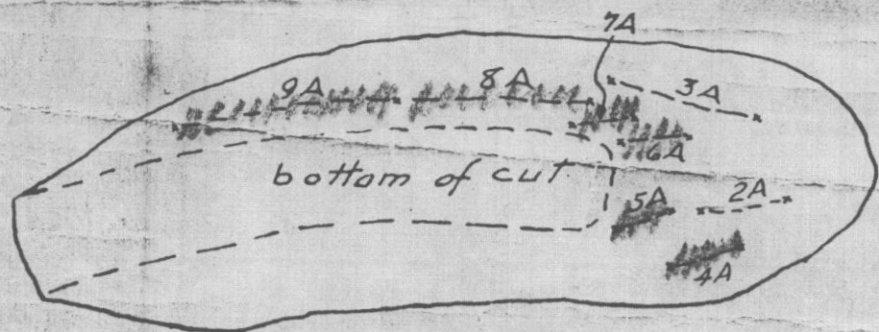 7A
9A 8A 3A
6A
bottom of cut
5A 2A
4A